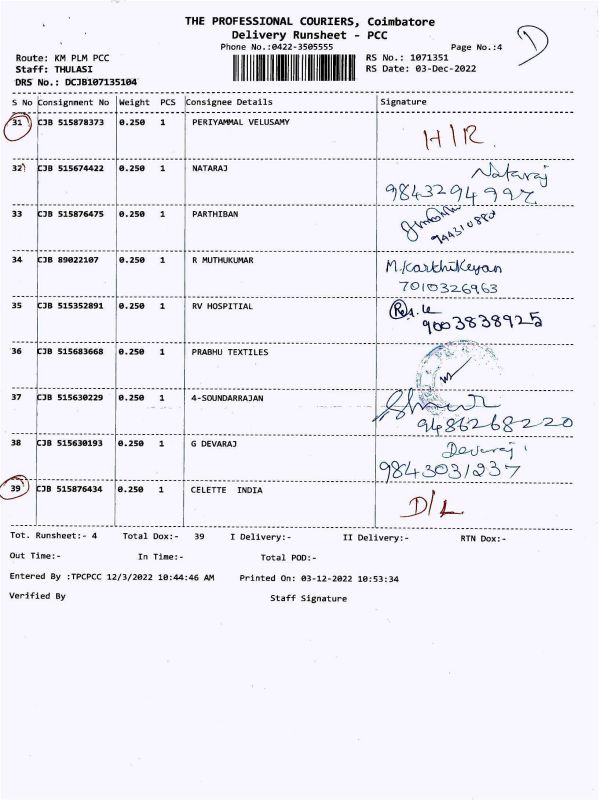 THE PROFESSIONAL COURIERS, Coimbatore
Delivery Runsheet - PCC
Phone No.:0422-3505555 Page No.:4
Route: KM PLM PCC RS No.: 1071351
Staff: THULASI RS Date: 03-Dec-2022
DRS No.: DCJB107135104
S No Consignment No Weight PCS Consignee Details Signature
31 CJB 515878373 0.250 1 PERIYAMMAL VELUSAMY
H/R.
32 CJB 515674422 0.250 1 NATARAJ Nataraj
9843294997
33 CJB 515876475 0.250 1 PARTHIBAN
944310880
34 CJB 89022107 0.250 1 R MUTHUKUMAR M.Karthikeyan
7010326963
35 CJB 515352891 0.250 1 RV HOSPITIAL
9003838925
36 CJB 515683668 0.250 1 PRABHU TEXTILES
37 CJB 515630229 0.250 1 4-SOUNDARRAJAN
9486268220
38 CJB 515630193 0.250 1 G DEVARAJ Devaraj
9843031237
39 CJB 515876434 0.250 1 CELETTE INDIA
D/L
Tot. Runsheet:- 4 Total Dox:- 39 I Delivery:- II Delivery:- RTN Dox:-
Out Time:- In Time:- Total POD:-
Entered By :TPCPCC 12/3/2022 10:44:46 AM Printed On: 03-12-2022 10:53:34
Verified By Staff Signature